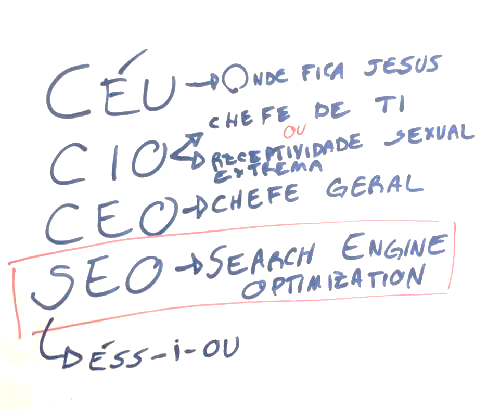 CÉU → ONDE FICA JESUS
CIO → CHEFE DE TI
OU
→ RECEPTIVIDADE SEXUAL
EXTREMA
CEO → CHEFE GERAL
SEO → SEARCH ENGINE
OPTIMIZATION
→ ÉSS-i-OU